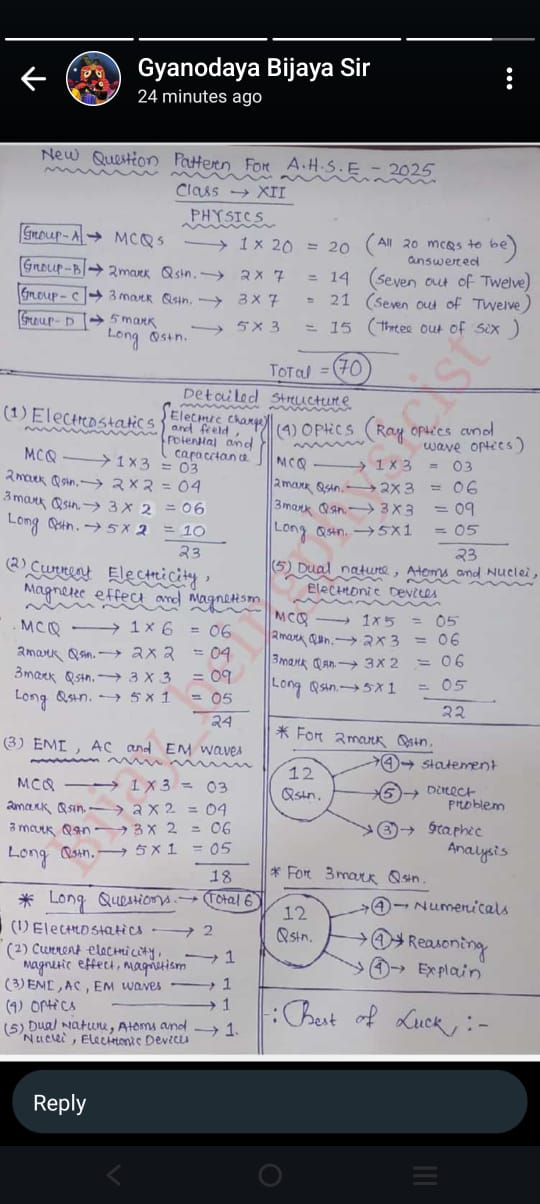 Gyanodaya Bijaya Sir
24 minutes ago
New Question Pattern For A.H.S.E - 2025
Class → XII
PHYSICS
Group-A → MCQs → 1 x 20 = 20 (All 20 mcqs to be answered)
Group-B → 2mark Qstn. → 2 x 7 = 14 (Seven out of Twelve)
Group-C → 3mark Qstn. → 3 x 7 = 21 (Seven out of Twelve)
Group-D → 5mark Long Qstn. → 5 x 3 = 15 (Three out of Six)
Total = 70
Detailed Structure
(1) Electrostatics {Electric charge and field, Potential and capacitance}
MCQ → 1 x 3 = 03
2mark Qstn. → 2 x 2 = 04
3mark Qstn. → 3 x 2 = 06
Long Qstn. → 5 x 2 = 10
23
(2) Current Electricity,
Magnetic effect and Magnetism
MCQ → 1 x 6 = 06
2mark Qstn. → 2 x 2 = 04
3mark Qstn. → 3 x 3 = 09
Long Qstn. → 5 x 1 = 05
24
(3) EMI, AC and EM waves
MCQ → 1 x 3 = 03
2mark Qstn. → 2 x 2 = 04
3mark Qstn → 3 x 2 = 06
Long Qstn. → 5 x 1 = 05
18
* Long Questions. → Total 6
(1) Electrostatics → 2
(2) Current electricity,
magnetic effect, magnetism → 1
(3) EMI, AC, EM waves → 1
(4) Optics → 1
(5) Dual Nature, Atoms and
Nuclei, Electronic Devices → 1.
(4) Optics (Ray optics and
wave optics)
MCQ → 1 x 3 = 03
2mark Qstn. → 2 x 3 = 06
3mark Qstn. → 3 x 3 = 09
Long Qstn. → 5 x 1 = 05
23
(5) Dual nature, Atoms and Nuclei,
Electronic Devices
MCQ → 1 x 5 = 05
2mark Qstn. → 2 x 3 = 06
3mark Qstn. → 3 x 2 = 06
Long Qstn. → 5 x 1 = 05
22
* For 2mark Qstn.
12 Qstn.
→ 4 → Statement
→ 5 → Direct Problem
→ 3 → Graphic Analysis
* For 3mark Qstn.
12 Qstn.
→ 4 → Numericals
→ 4 → Reasoning
→ 4 → Explain
-: Best of Luck, :-
Reply